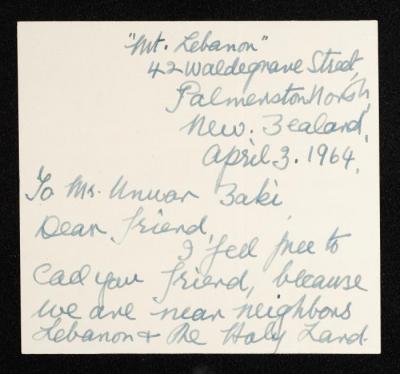 "Mt. Lebanon"
42 Waldegrave Street,
Palmerston North,
New. Zealand,
April 3. 1964.
To Mr. Unwar Zaki
Dear friend,
I feel free to
Call your friend, because
We are near neighbors
Lebanon & The Holy Land.